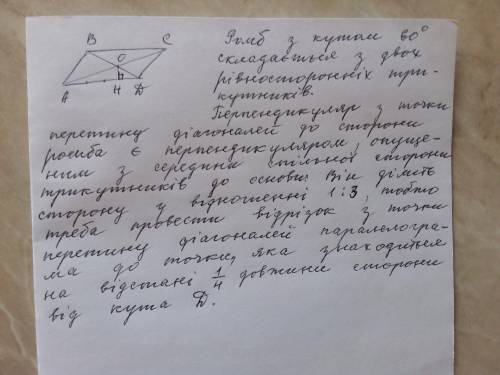 B C
O
A H D
Ромб з кутом 60°
складається з двох
рівносторонніх три-
кутників.
Перпендикуляр з точки
перетину діагоналей до сторони
ромба є перпендикуляром, опуще-
ним з середини спільної сторони
трикутників до основи. Він ділить
сторону у відношенні 1:3, тобто
треба провести відрізок з точки
перетину діагоналей паралелогра-
ма до точки, яка знаходиться
на відстані 1/4 довжини сторони
від кута D.